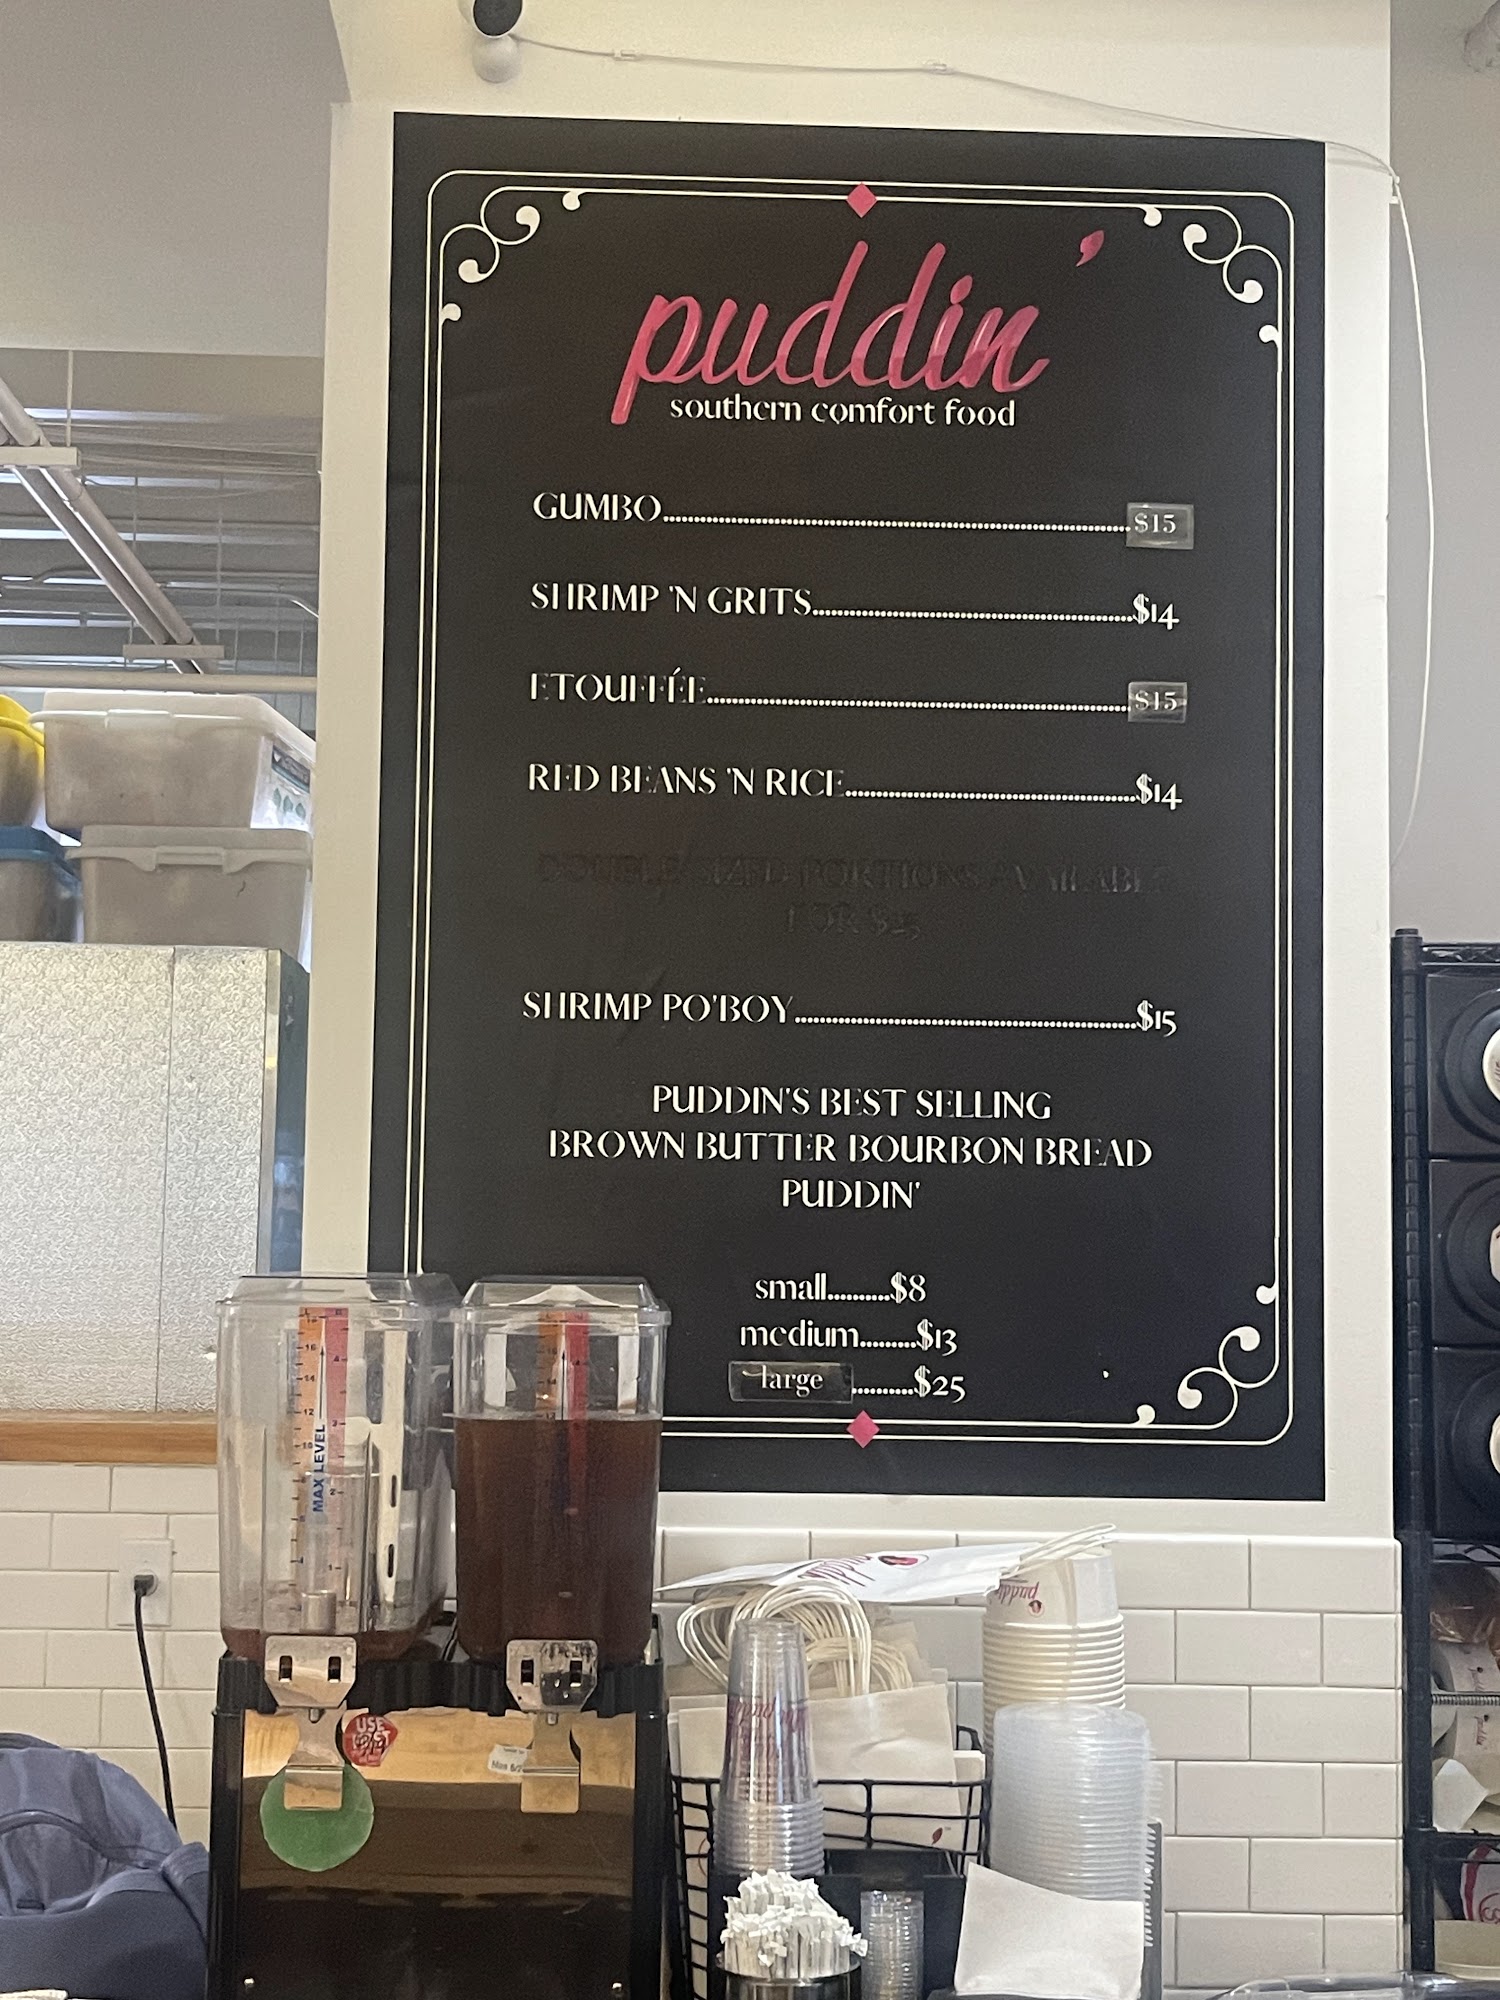 puddin'
southern comfort food
GUMBO $15
SHRIMP 'N GRITS $14
ETOUFFÉE $15
RED BEANS 'N RICE $14
DOUBLE SIZED PORTIONS AVAILABLE
FOR $25
SHRIMP PO'BOY $15
PUDDIN'S BEST SELLING
BROWN BUTTER BOURBON BREAD
PUDDIN'
small..........$8
medium.........$13
large ..........$25
MAX LEVEL
USE
FIRST
puddin'
puddin'